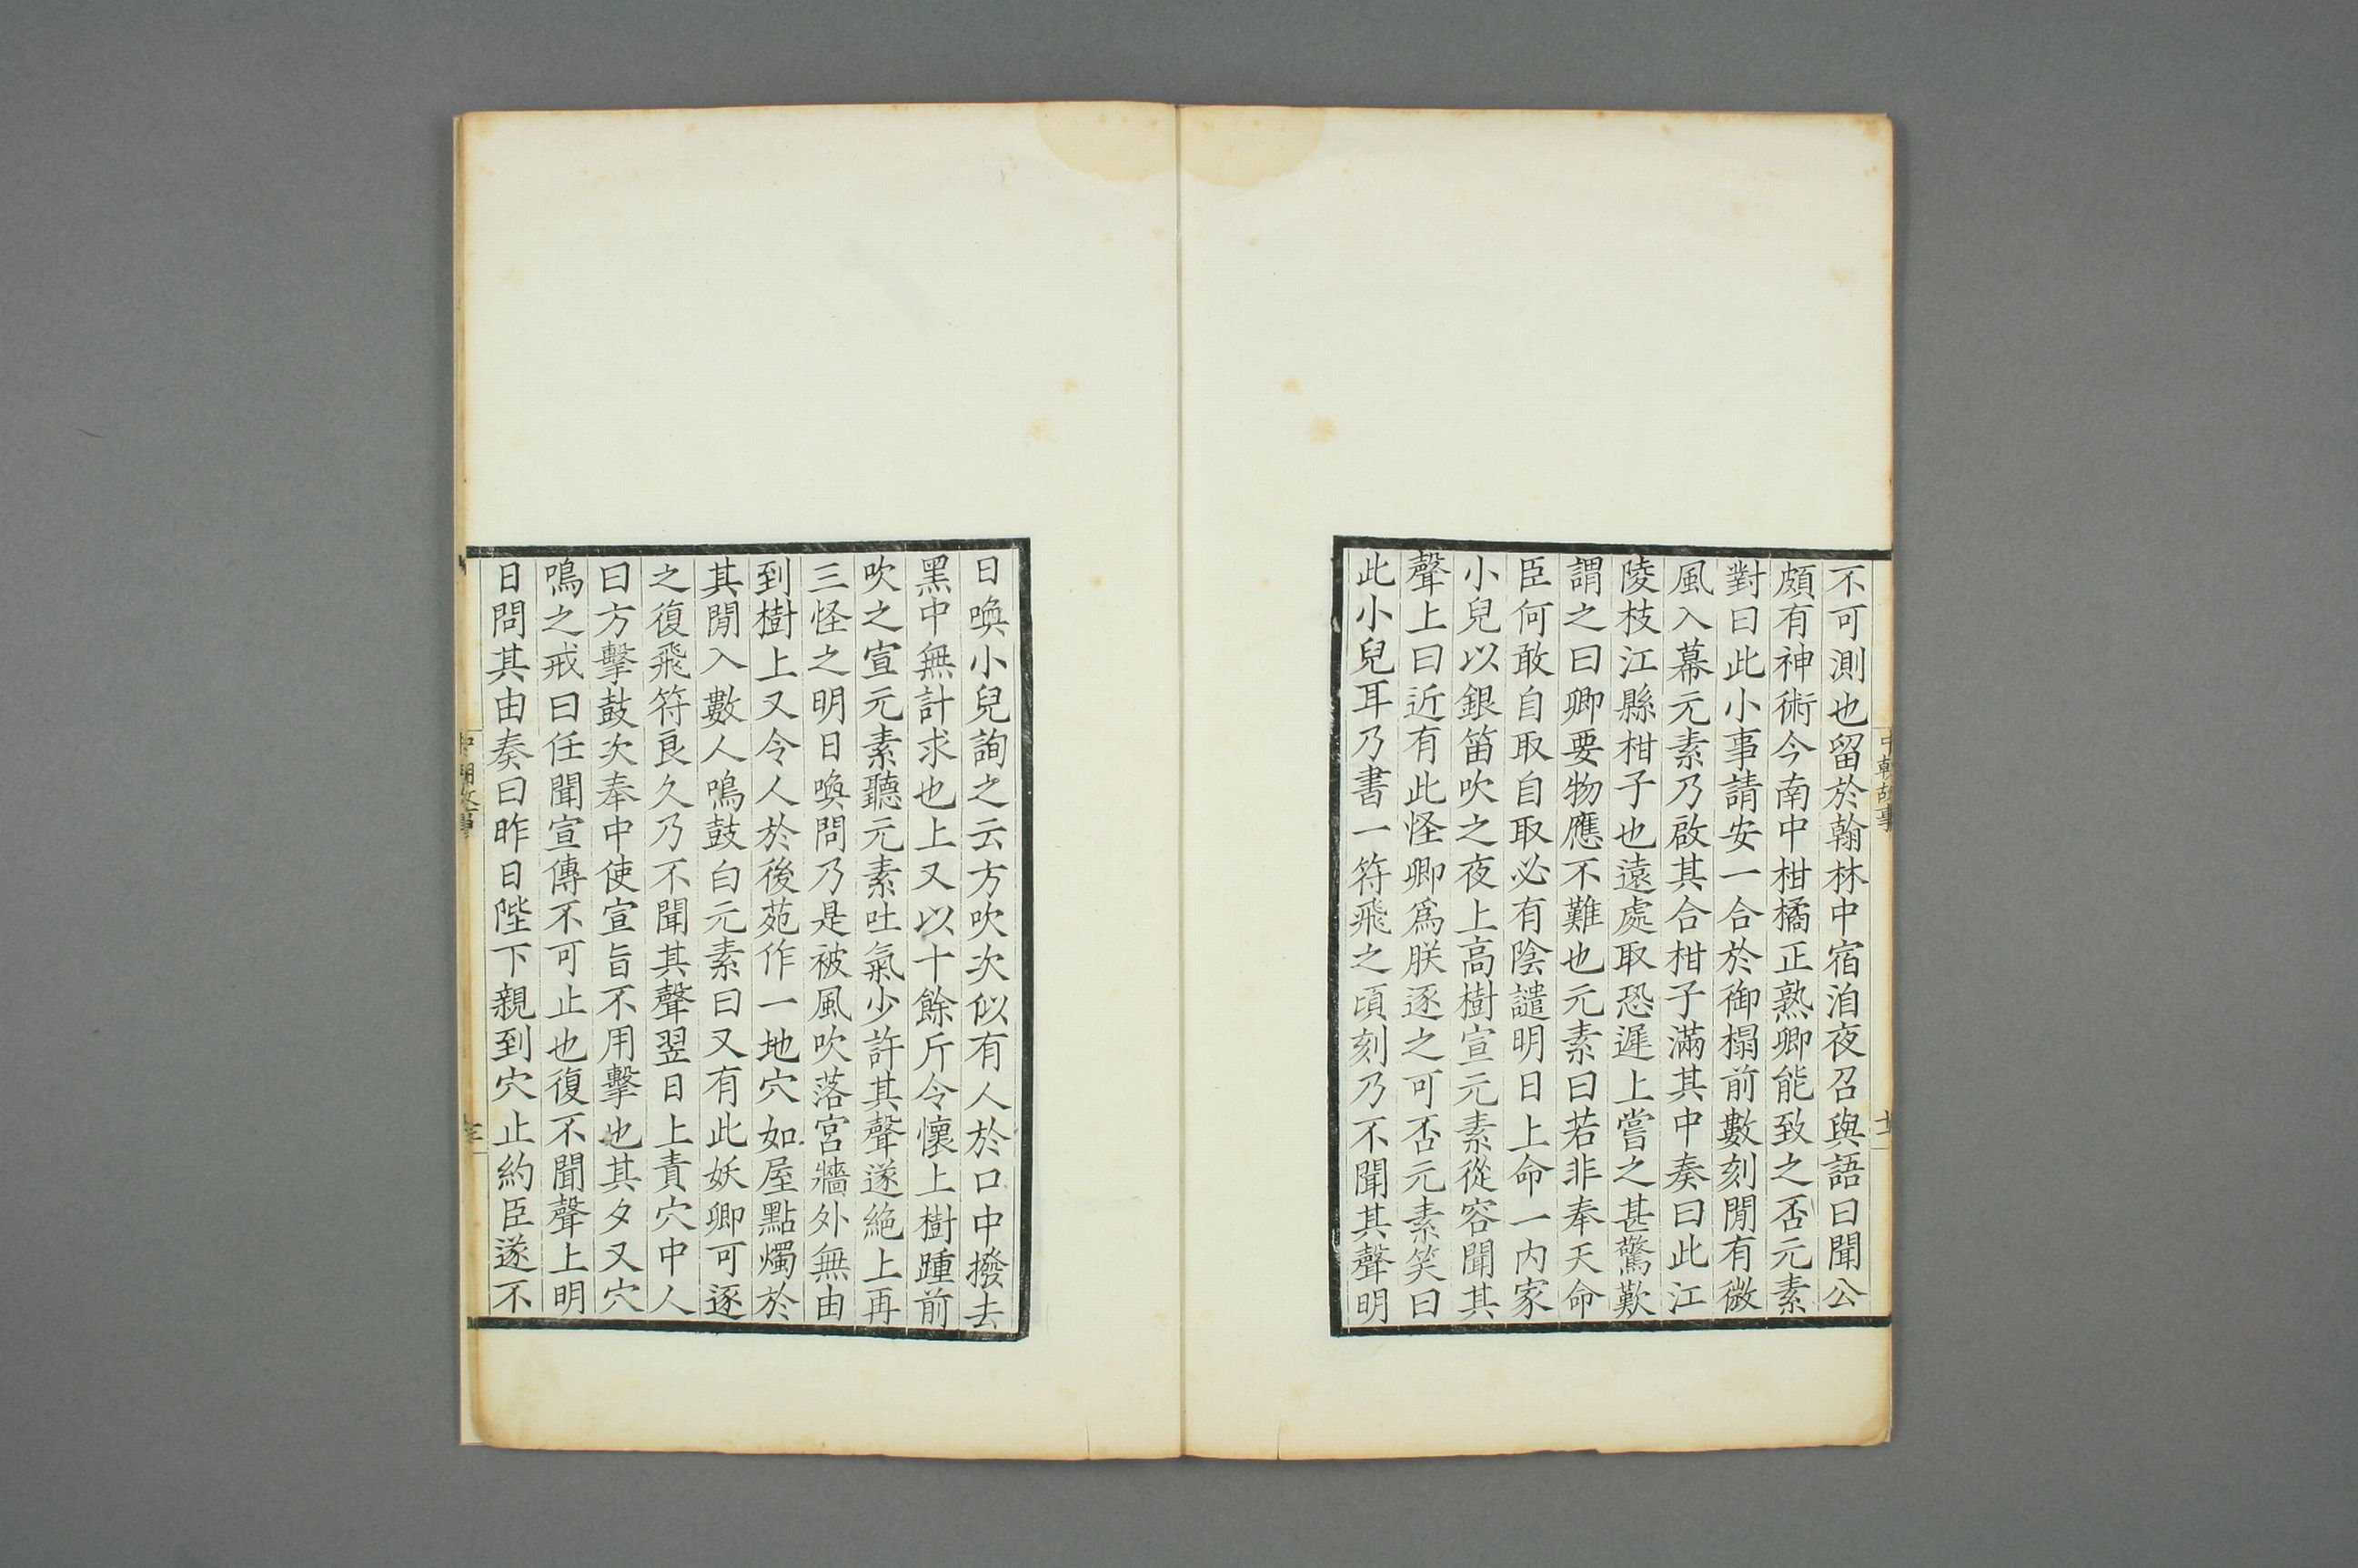 中朝故事
十二
不可測也留於翰林中宿洎夜召與語曰聞公
頗有神術今南中柑橘正熟卿能致之否元素
對曰此小事請安一合於御榻前數刻閒有微
風入幕元素乃啟其合柑子滿其中奏曰此江
陵枝江縣柑子也遠處取恐遲上嘗之甚驚歎
謂之曰卿要物應不難也元素曰若非奉天命
臣何敢自取自取必有陰譴明日上命一内家
小兒以銀笛吹之夜上高樹宣元素從容聞其
聲上曰近有此怪卿爲朕逐之可否元素笑曰
此小兒耳乃書一符飛之頃刻乃不聞其聲明
日喚小兒詢之云方吹次似有人於口中撥去
黑中無計求也上又以十餘斤令懷上樹踵前
吹之宣元素聽元素吐氣少許其聲遂絶上再
三怪之明日喚問乃是被風吹落宮牆外無由
到樹上又令人於後苑作一地穴如屋點燭於
其閒入數人鳴鼓白元素曰又有此妖卿可逐
之復飛符良久乃不聞其聲翌日上責穴中人
曰方擊鼓次奉中使宣旨不用擊也其夕又穴
鳴之戒曰任聞宣傳不可止也復不聞聲上明
日問其由奏曰昨日陛下親到穴止約臣遂不